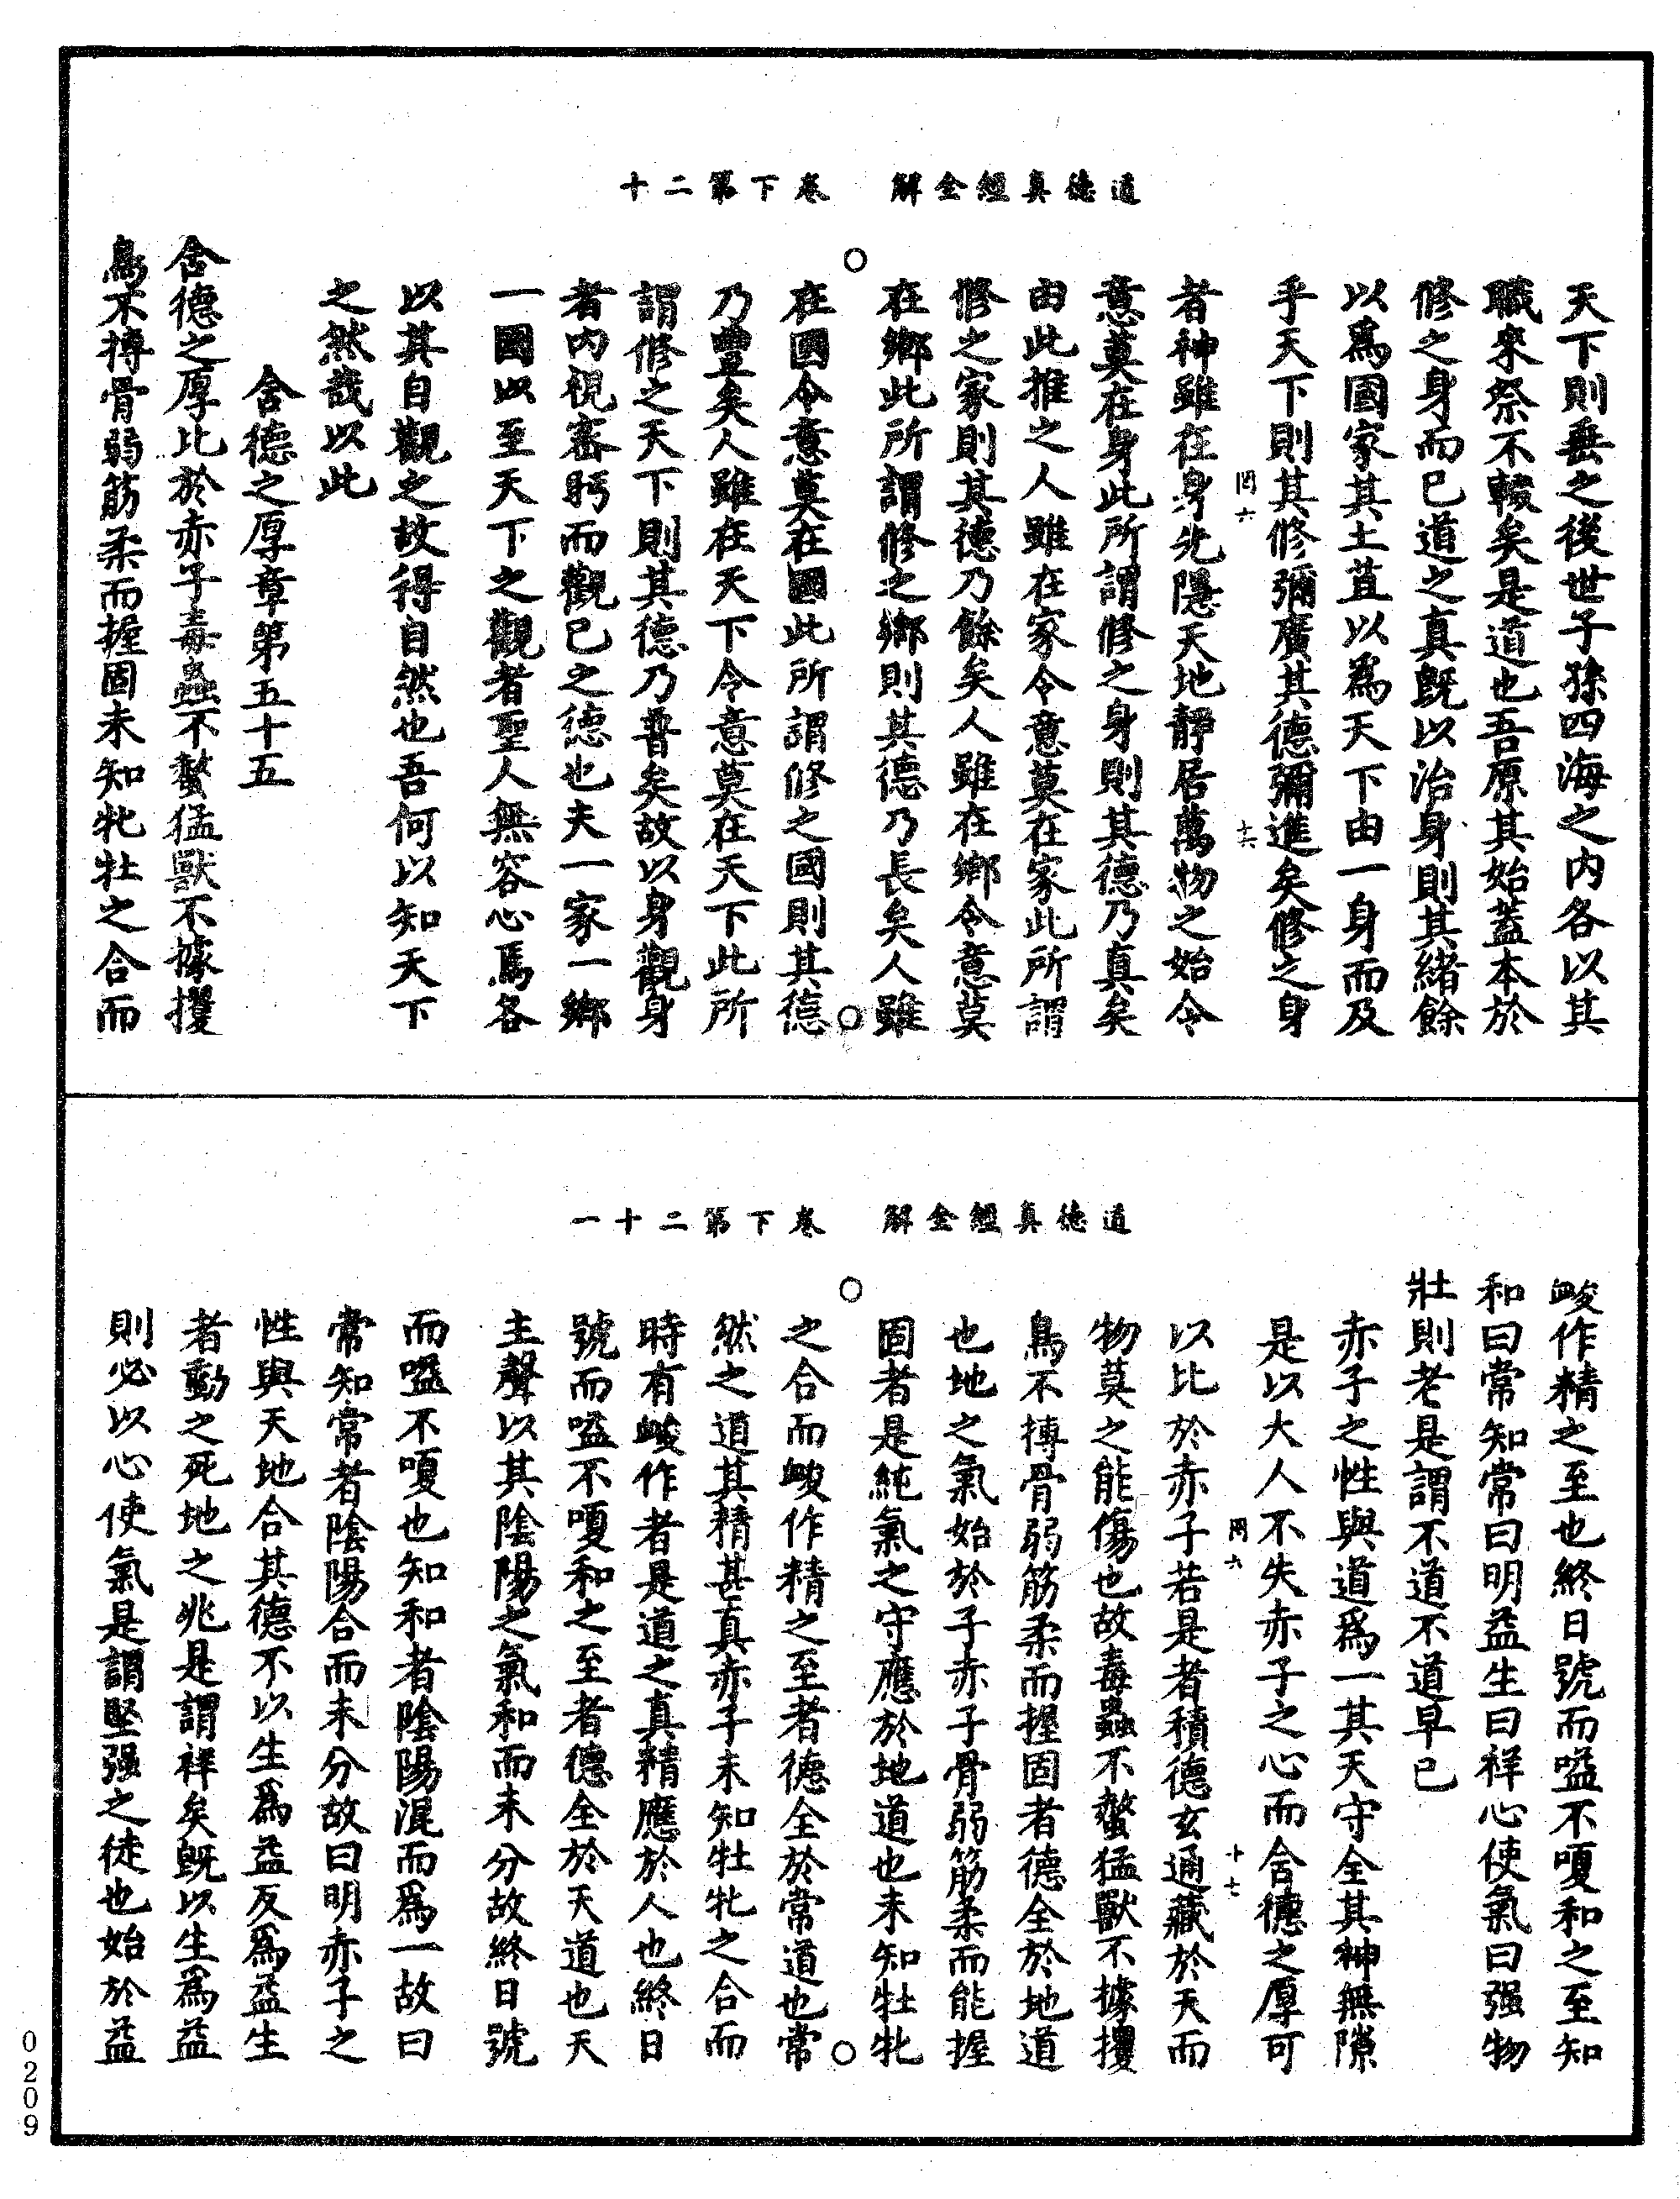 道德真經全解　卷下第二十
天下則垂之後世子孫四海之內各以其
職來祭不輟矣是道也吾原其始蓋本於
修之身而已道之真既以治身則其緒餘
以爲國家其土苴以爲天下由一身而及
乎天下則其修彌廣其德彌進矣修之身
罔六　十六
者神雖在身先隱天地靜居萬物之始令
意莫在身此所謂修之身則其德乃真矣
由此推之人雖在家令意莫在家此所謂
修之家則其德乃餘矣人雖在鄉令意莫
在鄉此所謂修之鄉則其德乃長矣人雖
在國令意莫在國此所謂修之國則其德
乃豐矣人雖在天下令意莫在天下此所
謂修之天下則其德乃普矣故以身觀身
者內視審眄而觀已之德也夫一家一鄉
一國以至天下之觀者聖人無容心焉各
以其自觀之故得自然也吾何以知天下
之然哉以此
含德之厚章第五十五
含德之厚比於赤子毒蟲不螫猛獸不據攫
鳥不摶骨弱筋柔而握固未知牝牡之合而
道德真經全解　卷下第二十一
峻作精之至也終日號而嗌不嗄和之至知
和曰常知常曰明益生曰祥心使氣曰强物
壯則老是謂不道不道早已
赤子之性與道爲一其天守全其神無隙
是以大人不失赤子之心而含德之厚可
罔六　十七
以比於赤子若是者積德玄通藏於天而
物莫之能傷也故毒蟲不螫猛獸不據攫
鳥不摶骨弱筋柔而握固者德全於地道
也地之氣始於子赤子骨弱筋柔而能握
固者是純氣之守應於地道也未知牡牝
之合而峻作精之至者德全於常道也常
然之道其精甚真赤子未知牡牝之合而
時有峻作者是道之真精應於人也終日
號而嗌不嗄和之至者德全於天道也天
主聲以其陰陽之氣和而未分故終日號
而嗌不嗄也知和者陰陽混而爲一故曰
常知常者陰陽合而未分故曰明赤子之
性與天地合其德不以生爲益反爲益生
者動之死地之兆是謂祥矣既以生爲益
則必以心使氣是謂堅强之徒也始於益
0209